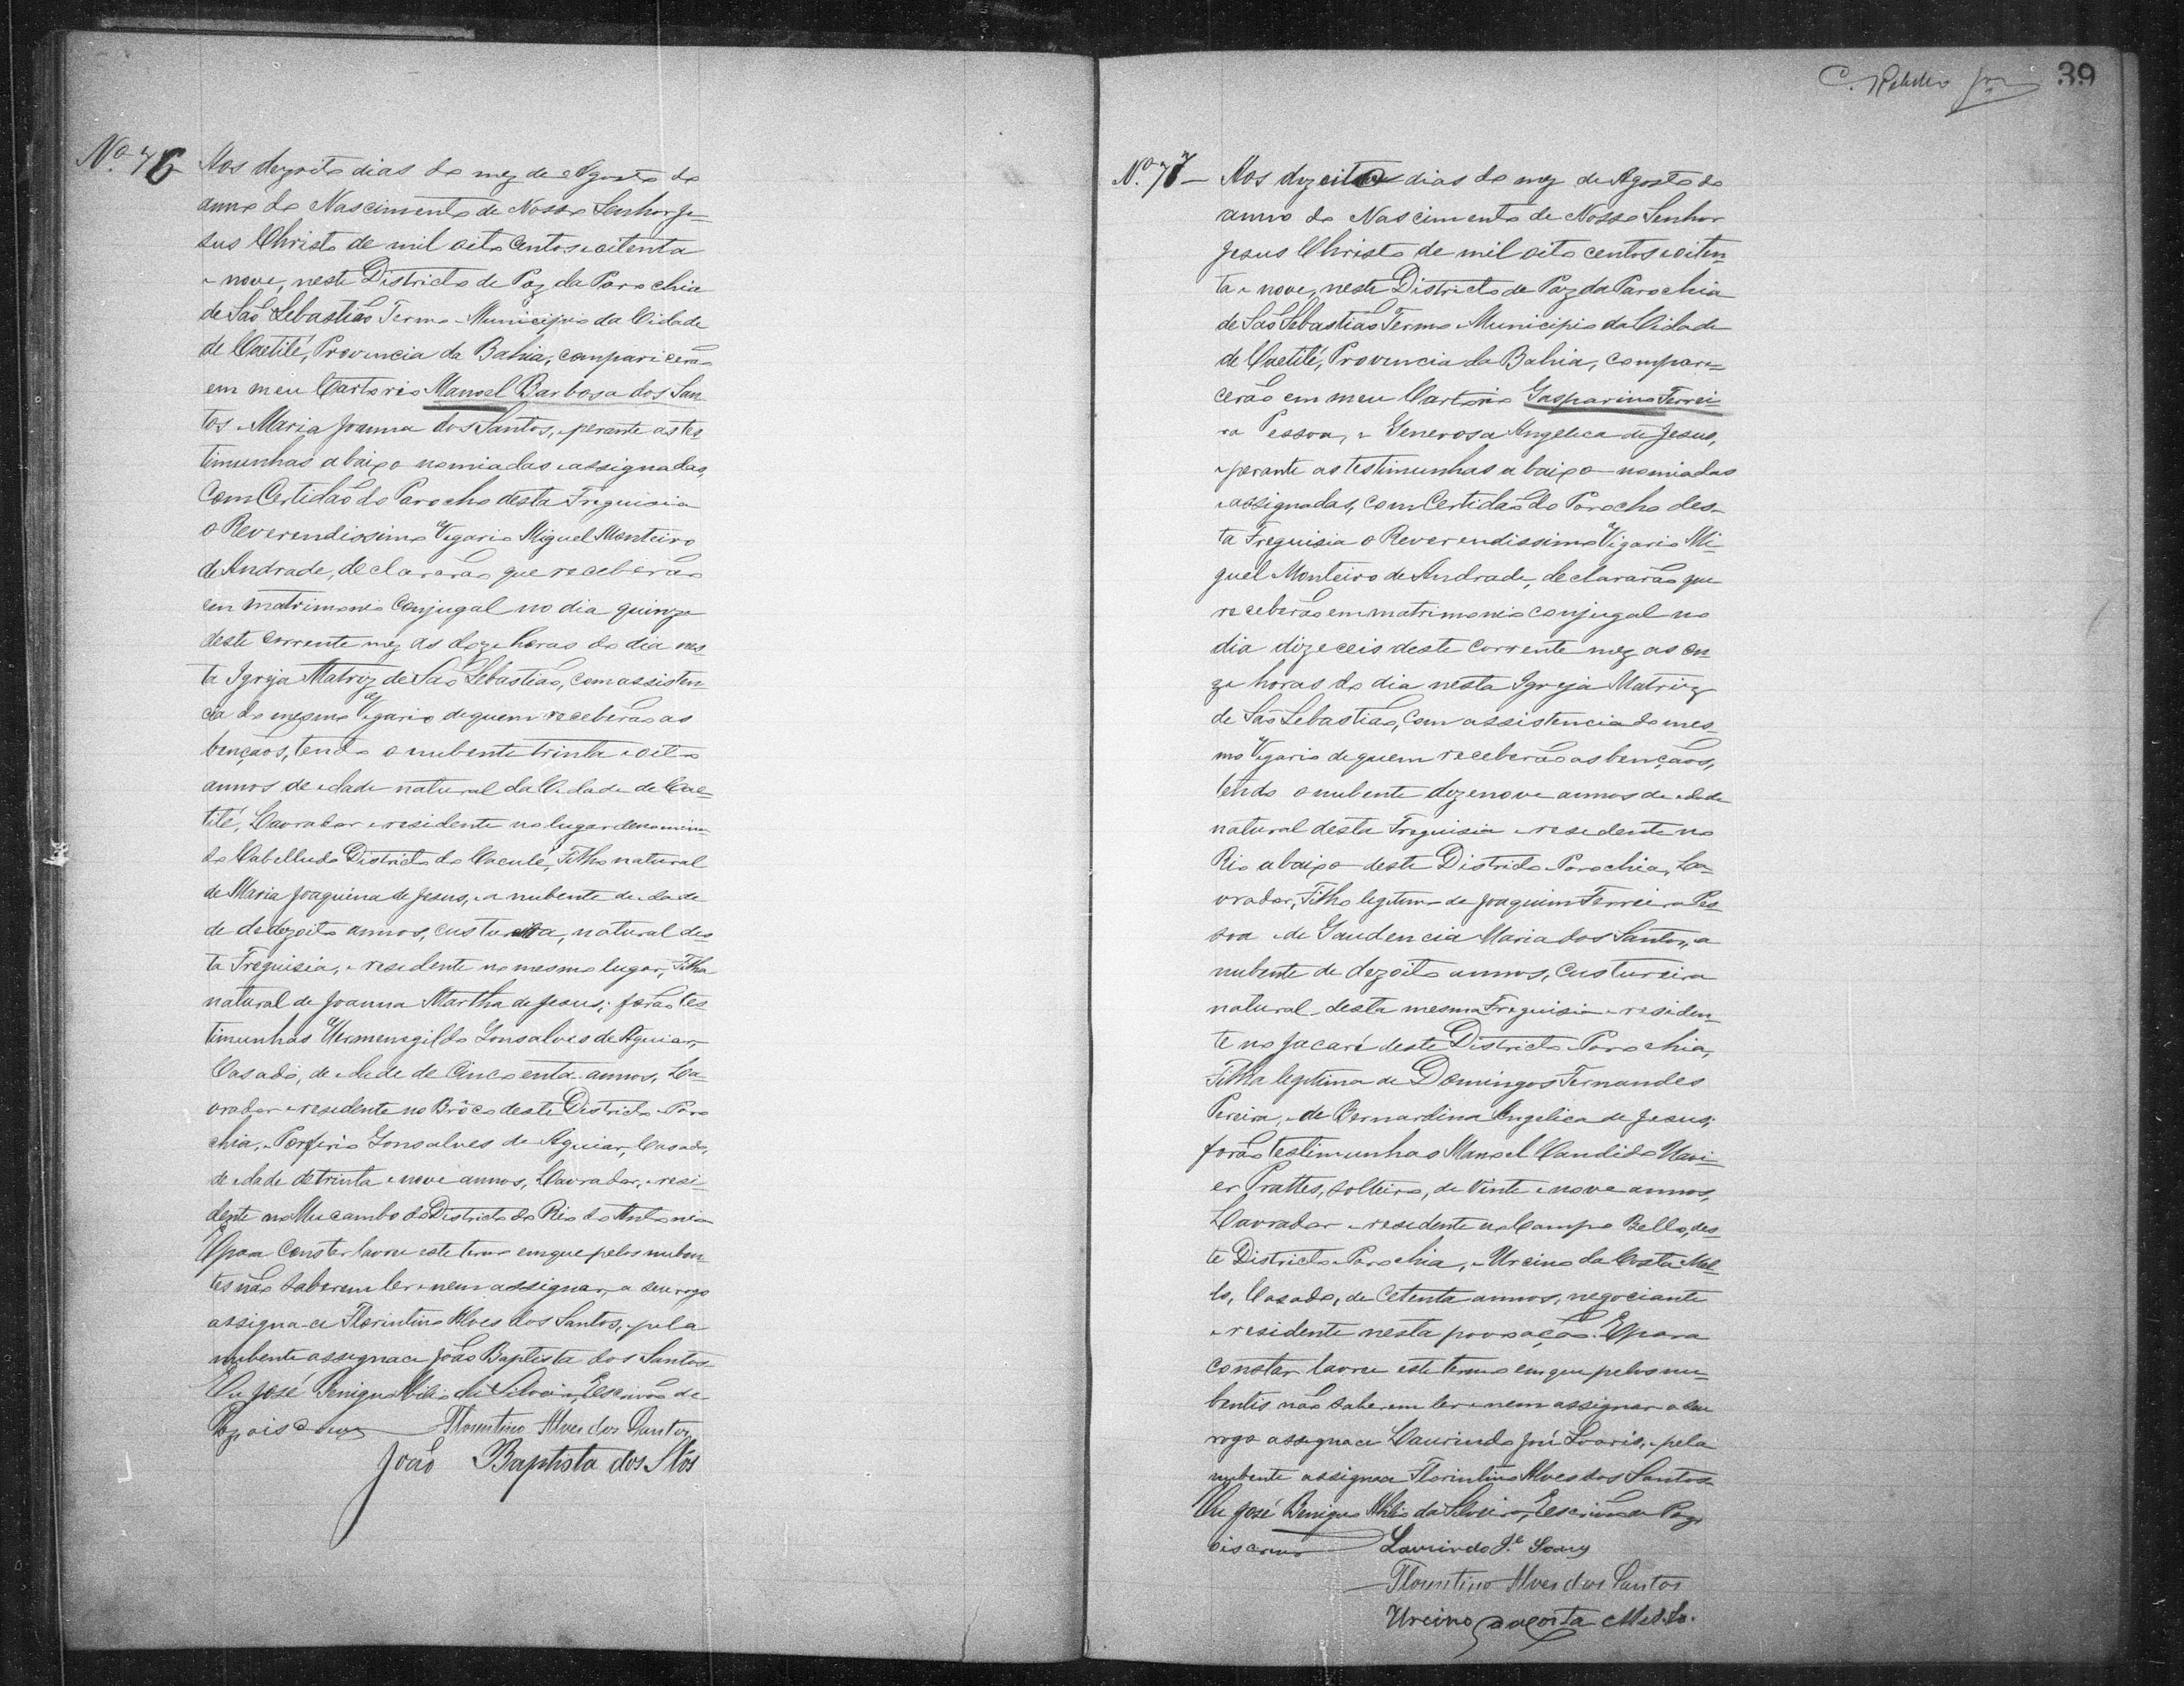 Nº 76
Aos dezoito dias do mez de Agosto do
anno do Nascimento de Nosso Senhor Je=
sus Christo de mil oito centos e oitenta
e nove, neste Districto de Paz da Parochia
de São Sebastião Termo e Municipio da Cidade
de Caetité, Provincia da Bahia, comparicerão
em meu Cartorio Manoel Barbosa dos San
tos e Maria Joanna dos Santos, e perante as tes
timunhas abaixo nomiadas e assignadas,
com Certidão do Parocho desta Freguisia
o Reverendissimo Vigario Miguel Monteiro
de Andrade, declararão que receberão
em matrimonio Conjugal no dia quinze
deste corrente mez as doze horas do dia nes
ta Igreja Matriz de São Sebastião, com assisten
cia do mesmo Vigario de quem receberão as
bençãos, tendo o nubente trinta e oito
annos de edade natural da Cidade de Cae=
tité, Lavrador e residente no lugar denomina
do Cabelludo Districto do Caculé, Filho natural
de Maria Joaquina de Jesus, e a nubente de edade
de dedezoito annos, custureira, natural des
ta Freguisia, e residente no mesmo lugar, Filha
natural de Joanna Martha de Jesus; forão tes
timunhas Hermenegildo Gonsalves de Aguiar,
Casado, de edade de Cincoenta annos, La=
vrador e residente no Brôco deste Districto e Paro
chia, e Porfirio Gonsalves de Aguiar, Casado,
de edade de trinta e nove annos, Lavrador, e resi=
dente no Mucambo do Districto do Rio do Antonio
E para Constar lavrei este termo em que pelos nuben=
tes não saberem ler e nem assignar, a seu rogo
assigna-ce Florintino Alves dos Santos, e pela
nubente assignace João Baptista dos Santos
Eu José Benigno Abilio da Silveira, Escrivão de
Paz, o is crevy Florentino Alves dos Santos
João Baptista dos Stos
C. Ribeiro
39
Nº 77 – Aos dezeito dias do mez de Agosto do
anno do Nascimento de Nosso Senhor
Jesus Christo de mil oito centos e oiten=
ta e nove, neste Districto de Paz da Parochia
de São Sebastião Termo e Municipio da Cidade
de Caetité, Provincia da Bahia, compare=
cerão em meu Cartorio Gasparino Ferrei
ra Pessoa, e Generosa Angelica de Jesus,
e perante as testimunhas abaixo nomiadas
e assignadas, com Certidão do Parocho des=
ta Freguisia o Reverendissimo Vigario Mi=
guel Monteiro de Andrade, declararão que
receberão em matrimonio conjugal no
dia dizeceis deste corrente mez as on=
ze horas do dia nesta Igreja Matriz
de São Sebastião, Com assistencia do mes=
mo Vigario de quem receberão as bençãos,
tendo o nubente dezenove annos de edade
natural desta Freguisia e residente no
Rio abaixo deste Districto e Parochia, La=
vrador, Filho legitimo de Joaquim Ferreira Pes
soa e de Gaudencia Maria dos Santos, a
nubente de dezoito annos, Custureira
natural desta mesma Freguisia e residen=
te no Jacaré deste Districto e Parochia,
Filha legitima de Domingos Fernandes
Pereira, e de Bernardina Angelica de Jesus;
forão testimunhas Manoel Candido Xavi=
er Prattes, solteiro, de Vinte e nove annos,
Lavrador e residente no Campo Bello, des=
te Districto e Parochia, e Urcino da Costa Mel=
lo, Casado, de Cetenta annos, negociante
e residente nesta povoação. E para
constar lavrei este termo em que pelos nu=
bentis não saberem ler e nem assignar a seu
rogo assignace Laurindo José Soaris, e pela
nubente assignace Florintino Alves dos Santos
Eu José Benigno Abilio da Silveira, Escrivão de Paz
o is crevy Laurindo J.e Soares
Florentino Alves dos Santos
Urcino da Costa Mello.